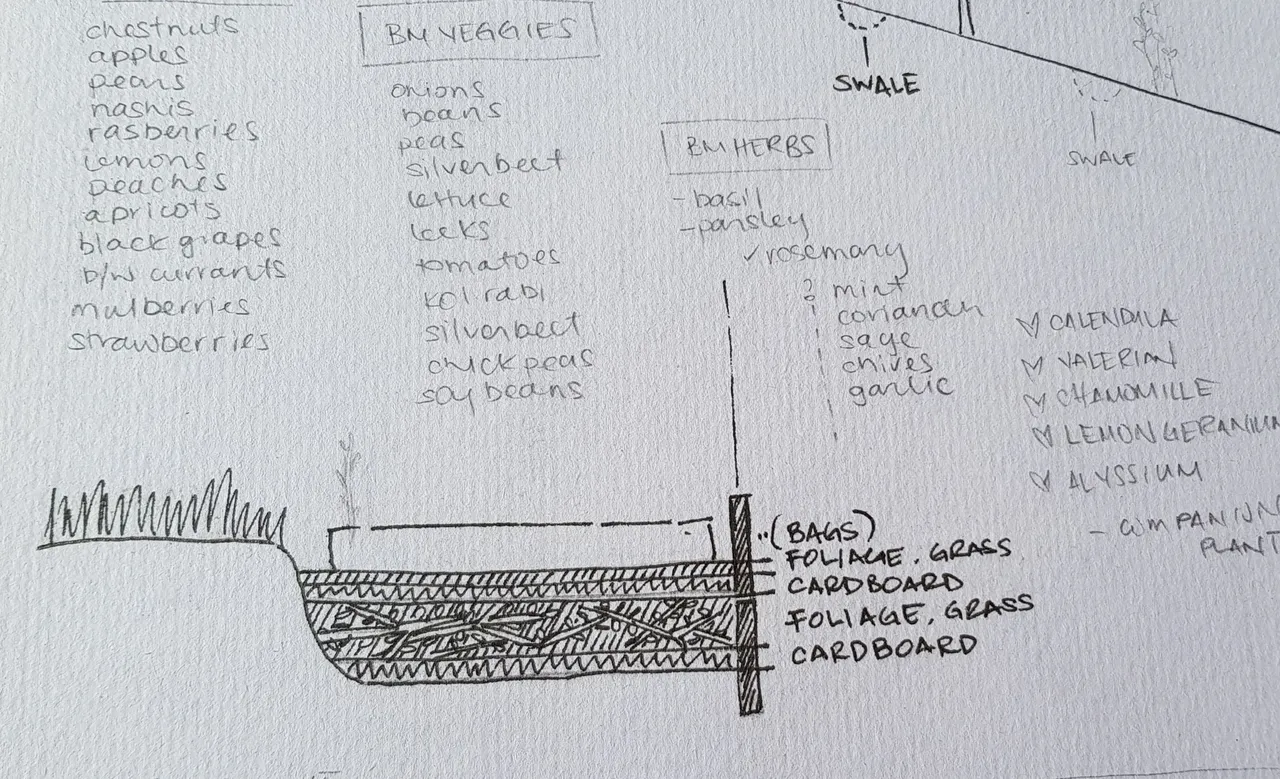 chestnuts
apples
pears
nashis
rasberries
lemons
peaches
apricots
black grapes
b/w currants
mulberries
strawberries
BM VEGGIES
onions
beans
peas
silverbeet
lettuce
leeks
tomatoes
kol rabi
silverbeet
chick peas
soy beans
BM HERBS
- basil
- parsley
✓ rosemary
? mint
coriander
sage
chives
garlic
SWALE
SWALE
CALENDULA
VALERIAN
CHAMOMILLE
LEMON GERANIUM
ALYSSIUM
- COMPANION
PLANT
(BAGS)
FOLIAGE, GRASS
CARDBOARD
FOLIAGE, GRASS
CARDBOARD